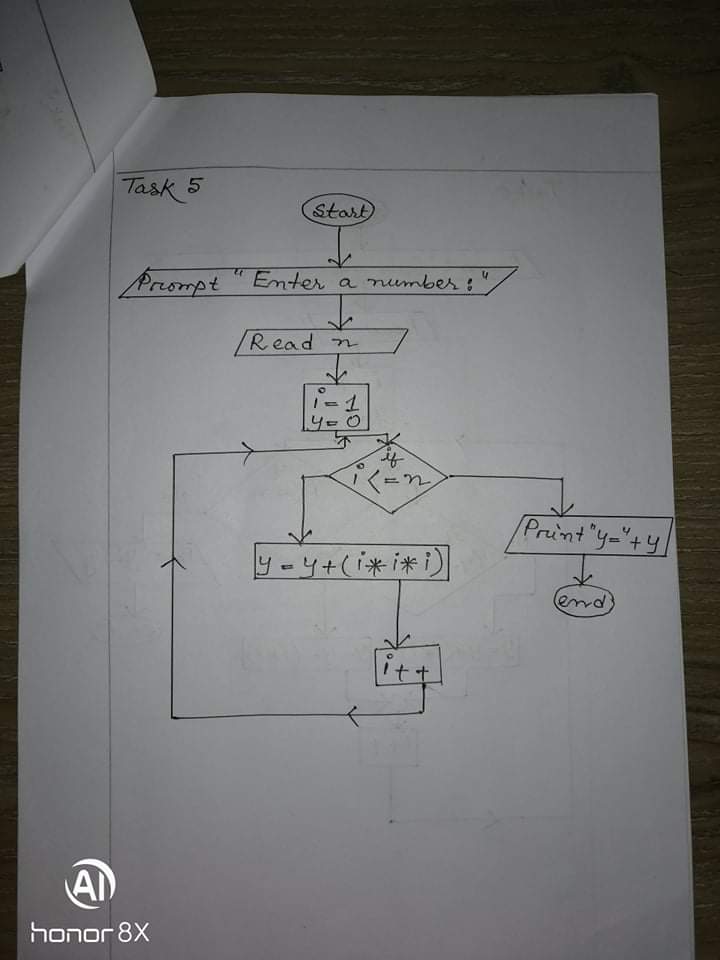 Task 5
Start
Prompt "Enter a number:"
Read n
i = 1
y = 0
if
i <= n
y = y + (i * i * i)
Print "y=" + y
end
i++
AI
honor 8X